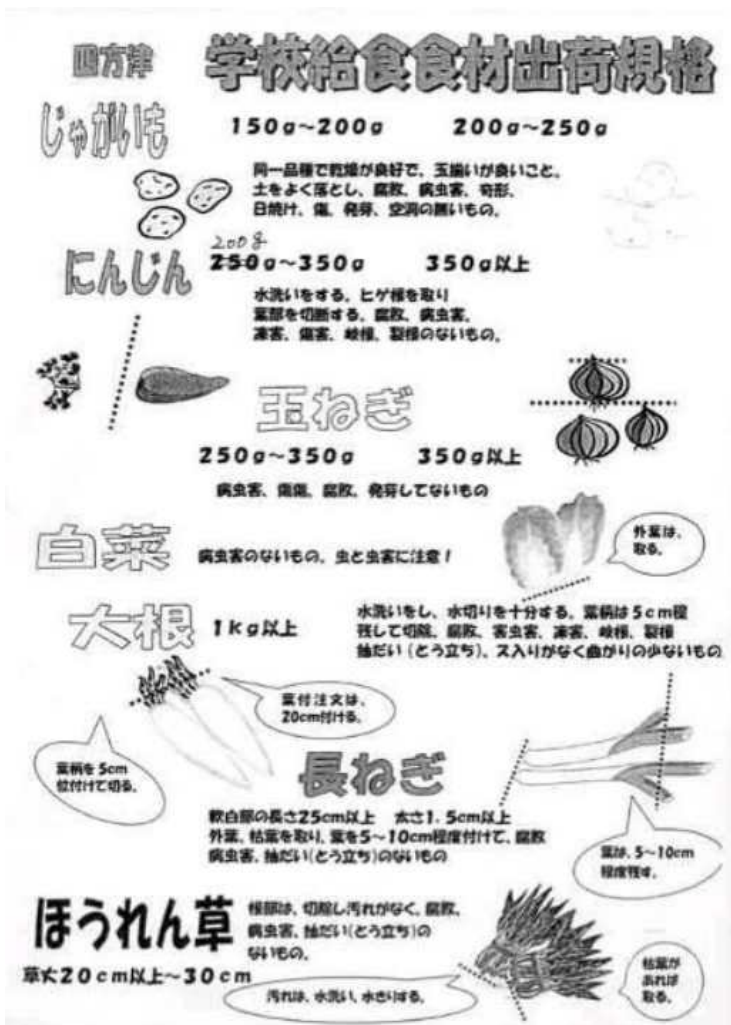 四方津 学校給食食材出荷規格
じゃがいも
150g～200g 200g～250g
同一品種で乾燥が良好で、玉揃いが良いこと。
土をよく落とし、腐敗、病虫害、奇形、
日焼け、傷、発芽、空洞の無いもの。
にんじん
200g
250g～350g 350g以上
水洗いをする。ヒゲ根を取り
葉部を切断する。腐敗、病虫害、
凍害、傷害、岐根、裂根のないもの。
玉ねぎ
250g～350g 350g以上
病虫害、傷傷、腐敗、発芽してないもの
白菜
病虫害のないもの、虫と虫害に注意！
外葉は、
取る。
大根
1kg以上
水洗いをし、水切りを十分する。葉柄は5cm程
残して切除、腐敗、害虫害、凍害、岐根、裂根
抽だい(とう立ち)、ス入りがなく曲がりの少ないもの
葉付注文は、
20cm付ける。
葉柄を5cm
位付けて切る。
長ねぎ
軟白部の長さ25cm以上 太さ1.5cm以上
外葉、枯葉を取り、葉を5～10cm程度付けて、腐敗
病虫害、抽だい(とう立ち)のないもの
葉は、5～10cm
程度残す。
ほうれん草
草丈20cm以上～30cm
根部は、切除し汚れがなく、腐敗、
病虫害、抽だい(とう立ち)の
ないもの。
汚れは、水洗い、水きりする。
枯葉が
あれば
取る。